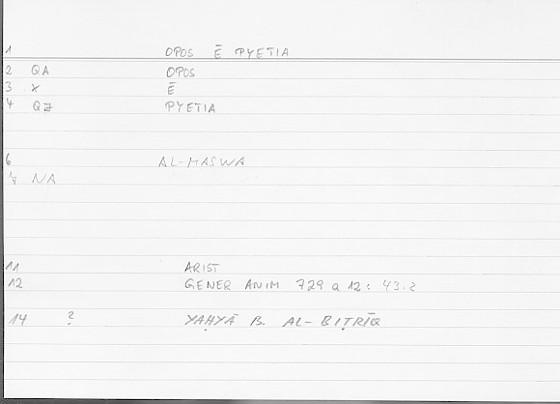 1 OPOS Ē PYETIA
2 QA OPOS
3 X Ē
4 QZ PYETIA
6 AL-MASWA
NA
11 ARIST
12 GENER ANIM 729 a 12: 43.2
14 ? YAḤYĀ B. AL-BIṬRĪQ